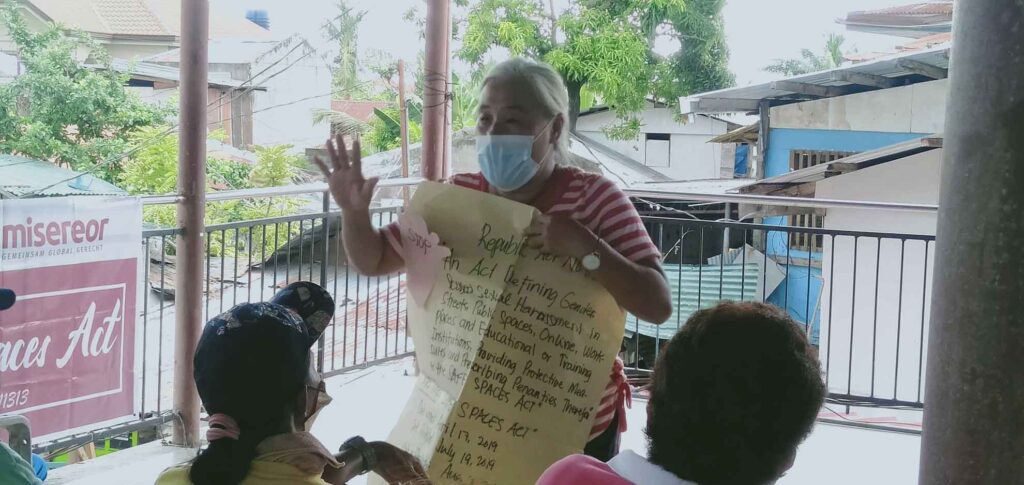 misereor
GEMEINSAM GLOBAL GERECHT
aces Act
11313
STOP
Republic Act No
An Act Defining Gender
Sexual Harassment in
Streets Public Spaces, Online, Work
Places and Educational or Training
Institutions, Providing Protective Mea-
and Prescribing Penalties
SPACES ACT"
SPACES ACT"
2019
July 19, 2019